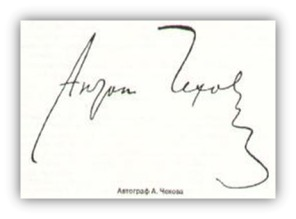 Антон Чехов
Автограф А. Чехова